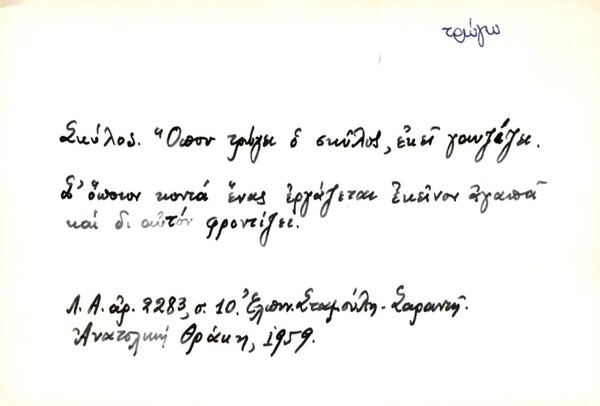 τρώγω
Σκύλος. Ὅπου τρώγει ὁ σκῦλος, ἐκεῖ γαυγίζει.
Σ' ὅποιον κοντά ἕνας ἐργάζεται ἐκεῖνον ἀγαπᾶ
καί δι αὐτόν φροντίζει.
Λ. Α. ἀρ. 2283, σ. 10. Ἐλπιν. Σταμούλη-Σαραντῆ.
Ἀνατολική Θράκη, 1959.